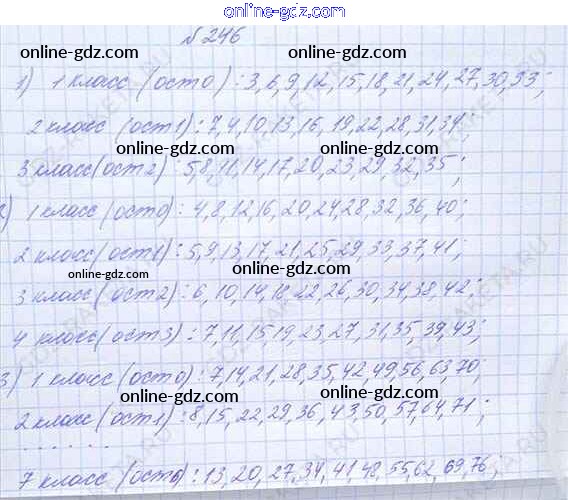 online-gdz.com
№246
online-gdz.com online-gdz.com
1) 1 класс (ост 0) : 3, 6, 9, 12, 15, 18, 21, 24, 27, 30, 33;
2 класс (ост 1) : 7, 4, 10, 13, 16, 19, 22, 28, 31, 34;
online-gdz.com online-gdz.com
3 класс (ост 2) : 5, 8, 11, 14, 17, 20, 23, 29, 32, 35;
2) 1 класс (ост 0) : 4, 8, 12, 16, 20, 24, 28, 32, 36, 40;
online-gdz.com
2 класс (ост 1) : 5, 9, 13, 17, 21, 25, 29, 33, 37, 41;
online-gdz.com online-gdz.com
3 класс (ост 2) : 6, 10, 14, 18, 22, 26, 30, 34, 38, 42;
4 класс (ост 3) : 7, 11, 15, 19, 23, 27, 31, 35, 39, 43;
3) 1 класс (ост 0) : 7, 14, 21, 28, 35, 42, 49, 56, 63, 70;
online-gdz.com online-gdz.com
2 класс (ост 1) : 8, 15, 22, 29, 36, 43, 50, 57, 64, 71;
. . . . . .
7 класс (ост 6) : 13, 20, 27, 34, 41, 48, 55, 62, 69, 76;
online-gdz.com